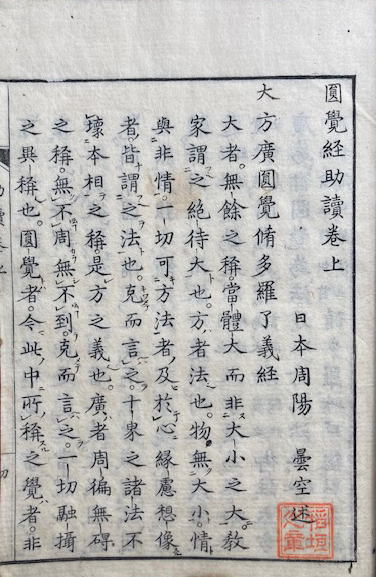 圓覺經助讀卷上
日本周陽 曇空述
大方廣圓覺脩多羅了義經
大者。無餘之稱。當體大而非大小之大。教
家謂之絶待大也。方者法也。物無大小。情
與非情。一切可方法者。及於心緣慮想像
者。皆謂之法也。克而言之。十界之諸法不
壞本相之稱。是方之義也。廣者周徧無碍
之稱。無不周無不到。克而言之。一切融攝
之異稱也。圓覺者。令此中所稱之覺者。非
助讀卷上